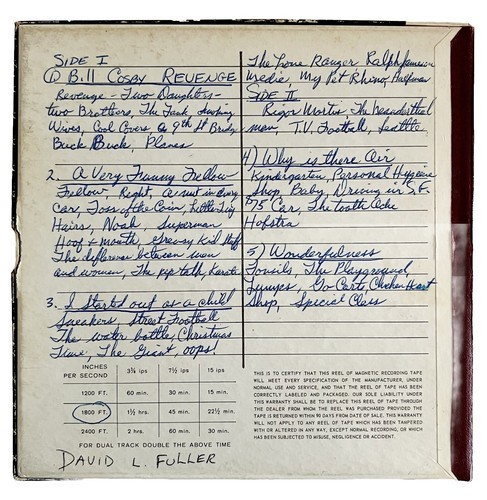 SIDE I
① Bill Cosby REVENGE
Revenge - Two Daughters -
two Brothers, The Tank, Smoking
Wives, Cool Covers, 9th St Bridge
Buck Buck, Planes
2. A Very Funny Fellow
Fellow, Right, A nut in Every
Car, Toss of the Coin, Little Tiny
Hairs, Noah, Superman
Hoof & Mouth, Greasy Kid Stuff
The difference between men
and women, The pep talk, Karate
3. I Started out as a child
Sneakers, Street Football
The water bottle, Christmas
Time, The Giant, oops!
The Lone Ranger, Ralph Jameson
Medic, My Pet Rhino, Half man
SIDE II
Rigor Mortis, The Neanderthal
man, T.V. Football, Seattle
4) Why is there Air
Kindergarten, Personal Hygiene
Shop, Baby, Driving in S.F.
$75 Car, The Tooth Ache
Hofstra
5) Wonderfulness
Tonsils, The Playground,
Lumps, Go Carts, Chicken Heart
Shop, Special Class
INCHES PER SECOND 3¾ ips 7½ ips 15 ips
1200 FT. 60 min. 30 min. 15 min.
1800 FT. 1½ hrs. 45 min. 22½ min.
2400 FT. 2 hrs. 60 min. 30 min.
FOR DUAL TRACK DOUBLE THE ABOVE TIME
THIS IS TO CERTIFY THAT THIS REEL OF MAGNETIC RECORDING TAPE
WILL MEET EVERY SPECIFICATION OF THE MANUFACTURER, UNDER
NORMAL USE AND SERVICE, AND THAT THE REEL OF TAPE HAS BEEN
CORRECTLY LABELED AND PACKAGED. OUR SOLE LIABILITY UNDER
THIS WARRANTY SHALL BE TO REPLACE THIS REEL OF TAPE THROUGH
THE DEALER FROM WHOM THE REEL WAS PURCHASED PROVIDED THE
TAPE IS RETURNED WITHIN 90 DAYS FROM DATE OF SALE. THIS WARRANTY
WILL NOT APPLY TO ANY REEL OF TAPE WHICH HAS BEEN TAMPERED
WITH OR ALTERED IN ANY WAY, EXCEPT NORMAL RECORDING, OR WHICH
HAS BEEN SUBJECTED TO MISUSE, NEGLIGENCE OR ACCIDENT.
DAVID L. FULLER